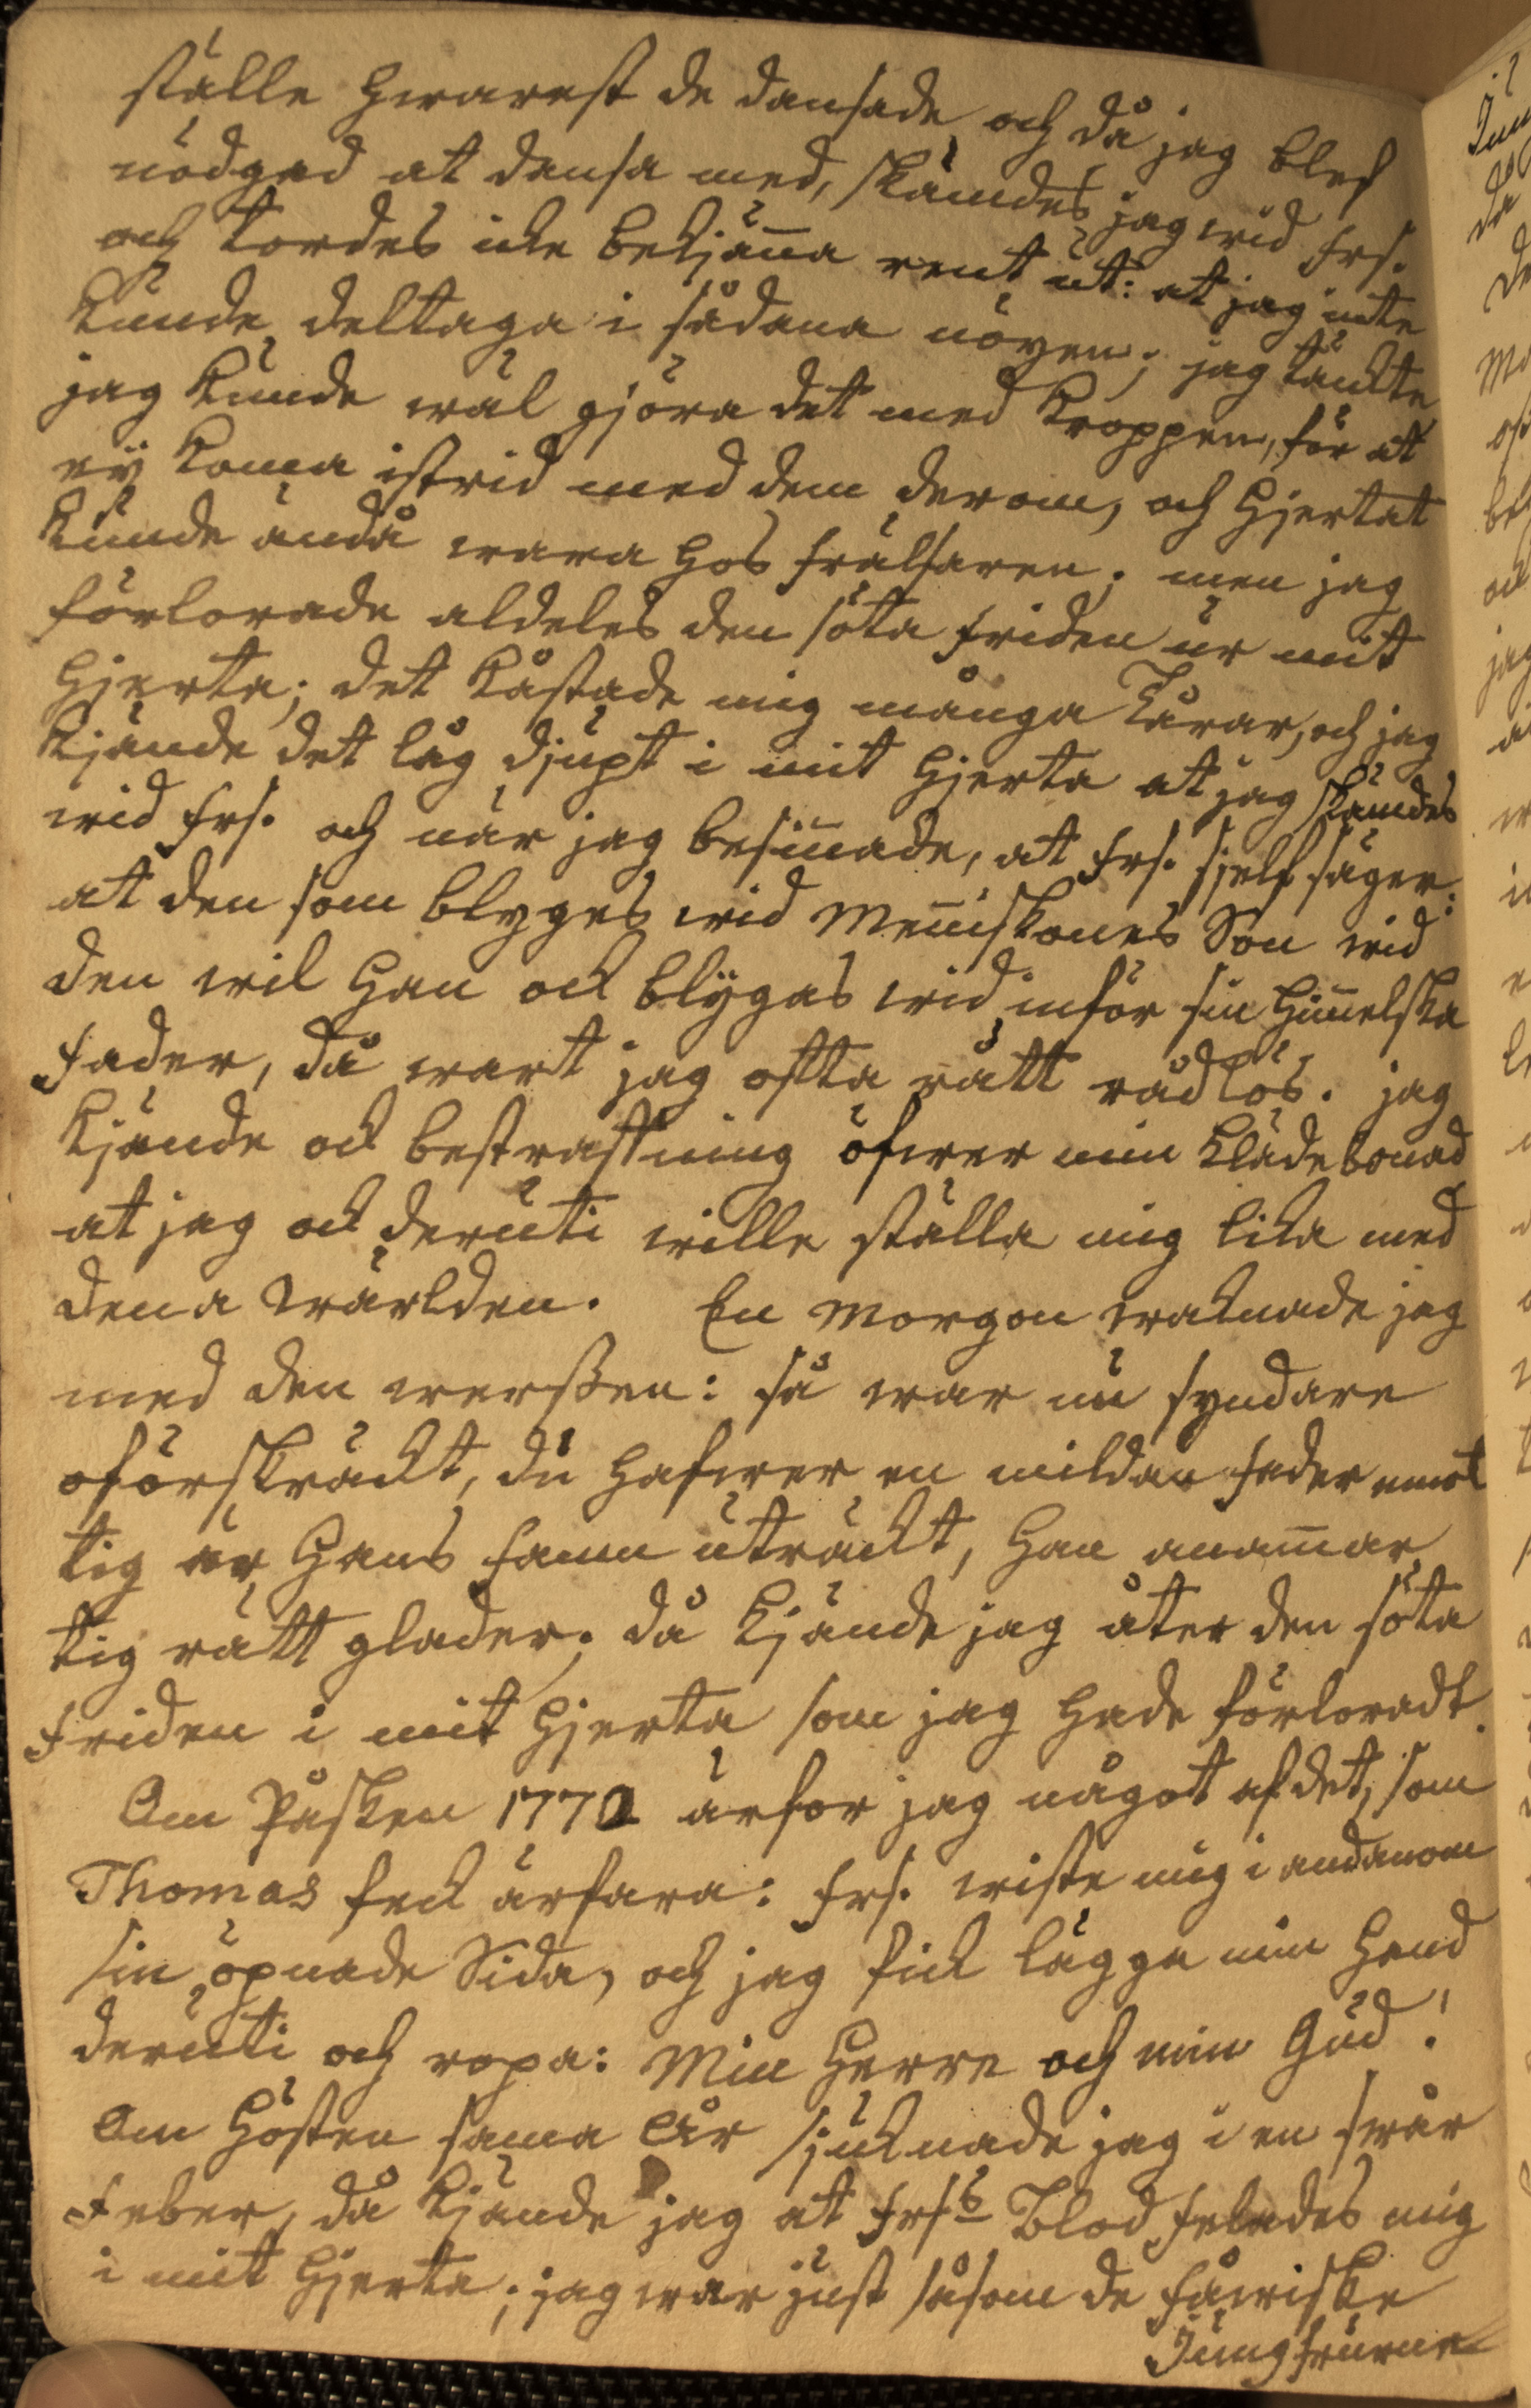 ställe hwarest de dansade, och då jag blef
nödgad at dansa med, skämdes jag wid frs.
och tordes icke bekjäna rent ut: at jag inte
kunde deltaga i sådana nöyen; jag tänkte
jag kunde wäl gjöra det med kroppen, för at
ey koma i strid med dem derom, och hjertat
kunde ändå wara hos frälsaren; men jag
förlorade aldeles den söta friden ur mit
hjerta; det kåstade mig många Tårar, och jag
kjände det låg djupt i mit hjerta at jag skämdes
wid frs. och när jag besinade, at frs. sjelf säger:
at den som blyges wid Meniskones Son wid
den wil han ock blygas wid inför sin Himelska
fader, då wart jag ofta rätt rådlös. jag
kjände ock bestraffning öfwer min klädebonad
at jag ock deruti wille ställa mig lika med
dena wärlden. En morgon waknade jag
med den werssen: så war nu syndare
oförskräckt, du hafwer en mildan fader emot
tig är hans famn uträckt, han anamar
tig rätt glader; då kjände jag åter den söta
friden i mit hjerta som jag hade förloradt.
Om Påsken 1770 ärfor jag något af det, som
Thomas feck ärfara: frs. wiste mig i andanom
sin öpnade Sida, och jag fick lägga min hand
deruti och ropa: Min Herre och min Gud!
Om hösten sama År sjuknade jag i en swår
feber, då kjände jag at frss Blod felades mig
i mit hjerta; jag war just såsom de fåwiske
Jungfrurne